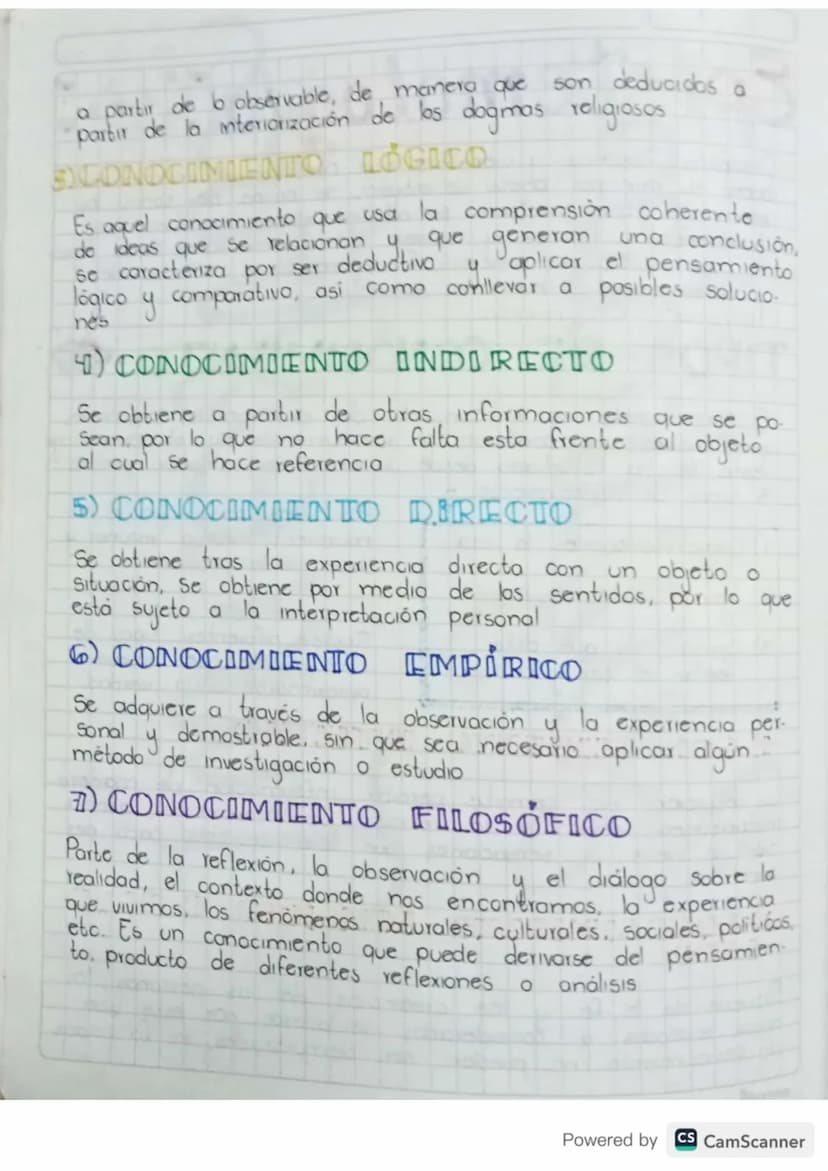 a partir de lo observable, de manera que son deducidos a
partir de la interiorización de los dogmas religiosos
3) CONOCIMIENTO LÓGICO
Es aquel conocimiento que usa la comprensión coherente
de ideas que se relacionan y que generan una conclusión,
se caracteriza por ser deductivo y aplicar el pensamiento
lógico y comparativo, asi como conllevar a posibles solucio-
nes
4) CONOCIMIENTO INDIRECTO
Se obtiene a partir de otras informaciones que se po-
sean, por lo que no hace falta esta frente al objeto
al cual se hace referencia
5) CONOCIMIENTO DIRECTO
Se obtiene tras la experiencia directa con un objeto o
situación, se obtiene por medio de los sentidos, por lo que
está sujeto a la interpretación personal
6) CONOCIMIENTO EMPÍRICO
Se adquiere a través de la observación y la experiencia per-
sonal y demostrable, sin que sea necesario aplicar algún
método de investigación o estudio
7) CONOCIMIENTO FILOSÓFICO
Parte de la reflexión, la observación y el diálogo sobre la
realidad, el contexto donde nos encontramos, la experiencia
que vivimos, los fenómenos naturales, culturales, sociales, políticos,
etc. Es un conocimiento que puede derivarse del pensamien-
to, producto de diferentes reflexiones o análisis
Powered by CS CamScanner